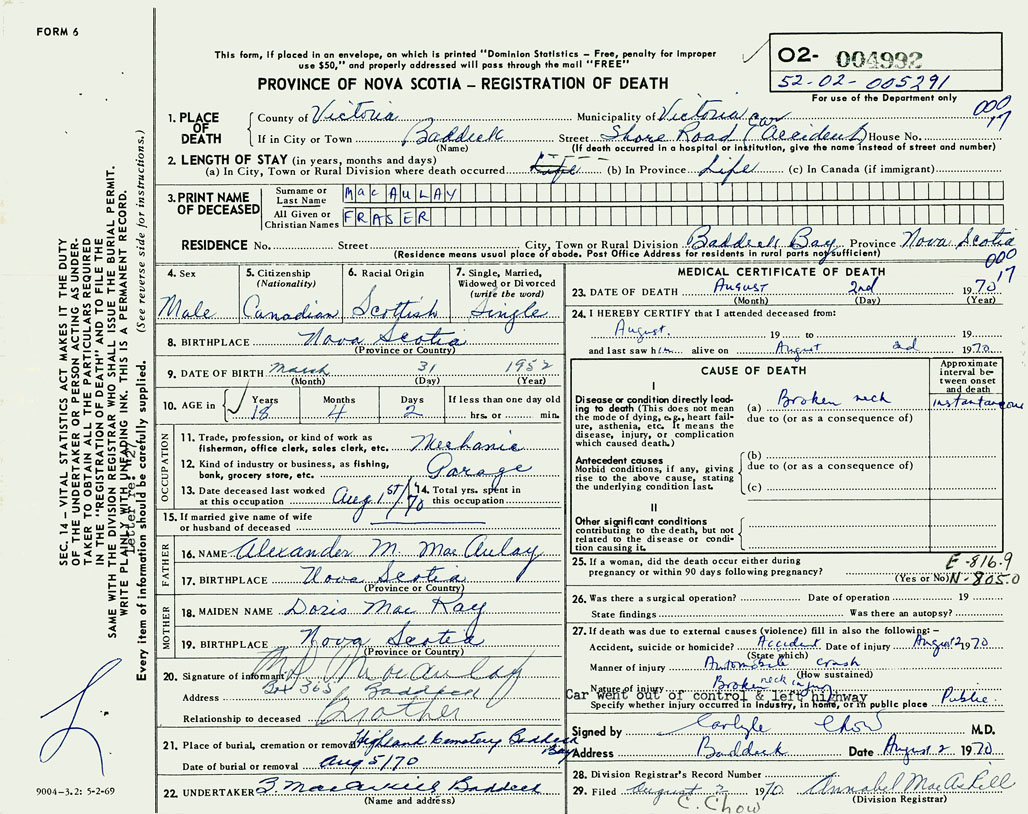 FORM 6
This form, if placed in an envelope, on which is printed "Dominion Statistics – Free, penalty for improper
use $50," and properly addressed will pass through the mail "FREE"
02- 004992
52-02-005291
For use of the Department only
PROVINCE OF NOVA SCOTIA – REGISTRATION OF DEATH
000
17
1. PLACE OF DEATH
County of Victoria Municipality of Victoria
If in City or Town Baddeck Street Shore Road (car Accident) House No.
(Name) (If death occurred in a hospital or institution, give the name instead of street and number)
2. LENGTH OF STAY (in years, months and days)
(a) In City, Town or Rural Division where death occurred Life (b) In Province Life (c) In Canada (if immigrant)
3. PRINT NAME OF DECEASED
Surname or Last Name MacAULAY
All Given or Christian Names FRASER
RESIDENCE No. Street City, Town or Rural Division Baddeck Bay Province Nova Scotia
(Residence means usual place of abode. Post Office Address for residents in rural parts not sufficient)
000
17
4. Sex
Male
5. Citizenship
(Nationality)
Canadian
6. Racial Origin
Scottish
7. Single, Married,
Widowed or Divorced
(write the word)
Single
8. BIRTHPLACE Nova Scotia
(Province or Country)
9. DATE OF BIRTH March 31 1952
(Month) (Day) (Year)
10. AGE in Years Months Days If less than one day old
18 4 2 hrs. or min.
OCCUPATION
11. Trade, profession, or kind of work as
fisherman, office clerk, sales clerk, etc. Mechanic
12. Kind of industry or business, as fishing,
bank, grocery store, etc. Garage
13. Date deceased last worked
at this occupation Aug 1st/70
14. Total yrs. spent in
this occupation
15. If married give name of wife
or husband of deceased
FATHER
16. NAME Alexander M. MacAulay
17. BIRTHPLACE Nova Scotia
(Province or Country)
MOTHER
18. MAIDEN NAME Doris MacKay
19. BIRTHPLACE Nova Scotia
(Province or Country)
20. Signature of informant MacAulay
Address Box 365 Baddeck
Relationship to deceased Brother
21. Place of burial, cremation or removal Highland Cemetery Baddeck Bay
Date of burial or removal Aug 5/70
22. UNDERTAKER Baddeck
(Name and address)
MEDICAL CERTIFICATE OF DEATH
23. DATE OF DEATH August 2nd 1970
(Month) (Day) (Year)
24. I HEREBY CERTIFY that I attended deceased from:
August 19 to 19
and last saw him alive on August 2d 1970
CAUSE OF DEATH
Approximate
interval be-
tween onset
and death
I
Disease or condition directly lead-
ing to death (This does not mean
the mode of dying, e.g., heart fail-
ure, asthenia, etc. It means the
disease, injury, or complication
which caused death.)
(a) Broken neck instantaneous
due to (or as a consequence of)
Antecedent causes
Morbid conditions, if any, giving
rise to the above cause, stating
the underlying condition last.
(b)
due to (or as a consequence of)
(c)
II
Other significant conditions
contributing to the death, but not
related to the disease or condi-
tion causing it.
25. If a woman, did the death occur either during
pregnancy or within 90 days following pregnancy?
(Yes or No)
E-816.9
N-805.0
26. Was there a surgical operation? Date of operation 19
State findings Was there an autopsy?
27. If death was due to external causes (violence) fill in also the following:–
Accident, suicide or homicide? Accident Date of injury August 2 1970
(State which)
Manner of injury Automobile crash
(How sustained)
Nature of injury Broken neck injury
Car went out of control & left highway
Specify whether injury occurred in industry, in home, or in public place Public
Signed by Carlyle Chow M.D.
Address Baddeck Date August 2 1970
28. Division Registrar's Record Number
29. Filed August 2 1970 Annabel MacAskill
(Division Registrar)
C. Chow
SEC. 14 – VITAL STATISTICS ACT MAKES IT THE DUTY
OF THE UNDERTAKER OR PERSON ACTING AS UNDER-
TAKER TO OBTAIN ALL THE PARTICULARS REQUIRED
IN THE "REGISTRATION OF DEATH" AND TO FILE THE
SAME WITH THE DIVISION REGISTRAR WHO SHALL ISSUE THE BURIAL PERMIT.
WRITE PLAINLY WITH UNFADING INK. THIS IS A PERMANENT RECORD.
Letter re: #27
Every item of information should be carefully supplied. (See reverse side for instructions.)
9004-3.2: 5-2-69